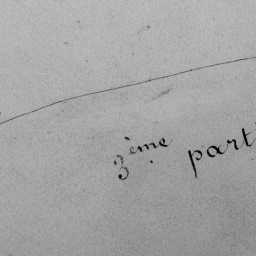 3ème part